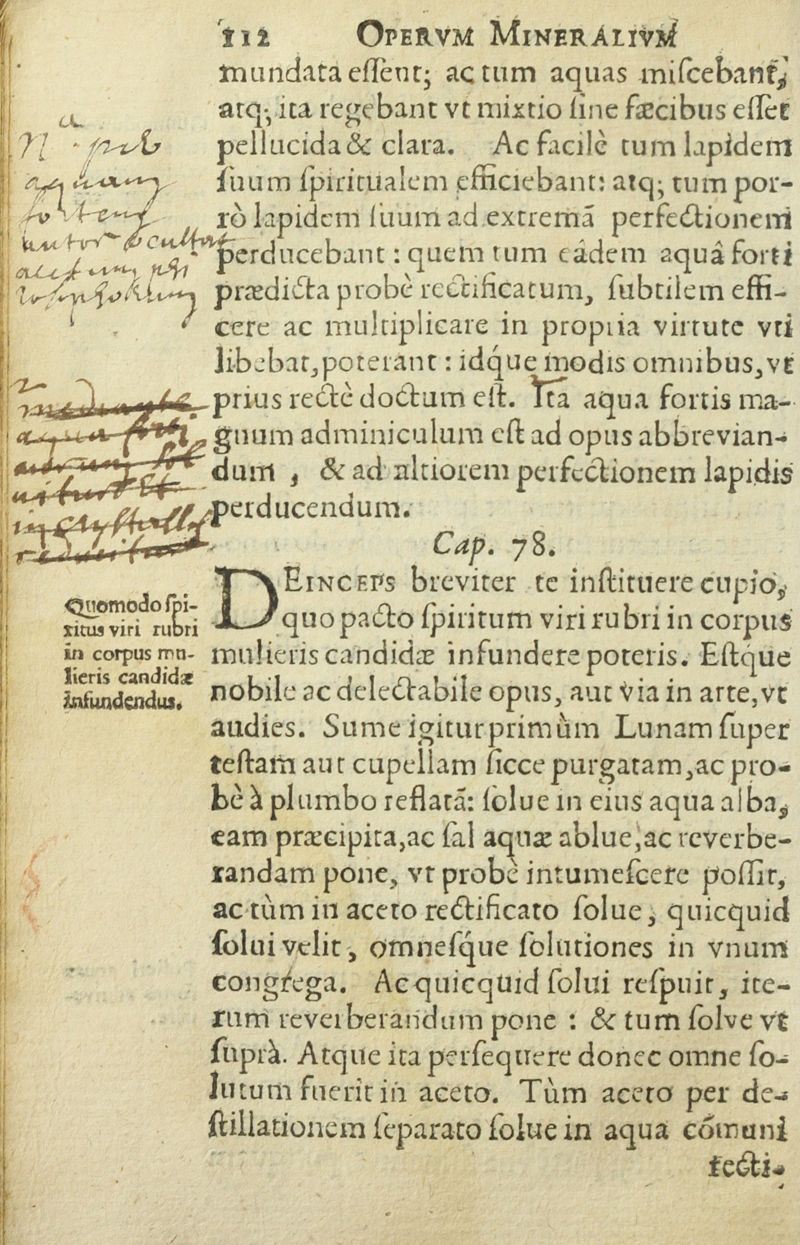 112 OPERVM MINERALIVM
mundata eſſent; ac tum aquas miſcebant,
atq; ita regebant vt mixtio ſine fæcibus eſſet
pellucida & clara. Ac facilè tum lapidem
ſuum ſpiritualem efficiebant: atq; tum por-
rò lapidem ſuum ad extremā perfectionem
perducebant : quem tum eâdem aquâ forti
prædicta probè rectificatum, ſubtilem effi-
cere ac multiplicare in propria virtute vti
libebat, poterant : idq́ue modis omnibus, vt
prius rectè doctum eſt. Ita aqua fortis ma-
gnum adminiculum eſt ad opus abbrevian-
dum , & ad altiorem perfectionem lapidis
perducendum.
Cap. 78.
DEINCEPS breviter te inſtituere cupio,
quo pacto ſpiritum viri rubri in corpus
mulieris candidæ infundere poteris. Eſtque
nobile ac delectabile opus, aut via in arte, vt
audies. Sume igitur primùm Lunam ſuper
teſtam aut cupellam ſicce purgatam, ac pro-
bè à plumbo reflatā: ſolue in eius aqua alba,
eam præcipita, ac ſal aquæ ablue, ac reverbe-
randam pone, vt probè intumeſcere poſſit,
ac tùm in aceto rectificato ſolue, quicquid
ſolui velit, omneſq́ue ſolutiones in vnum
congrega. Ac quicquid ſolui reſpuit, ite-
rum reverberandum pone : & tum ſolve vt
ſuprà. Atque ita perſequere donec omne ſo-
lutum fuerit in aceto. Tùm aceto per de-
ſtillationem ſeparato ſolue in aqua cómuni
recti-
Quomodo ſpi-
ritus viri rubri
in corpus mu-
lieris candidæ
infundendus.